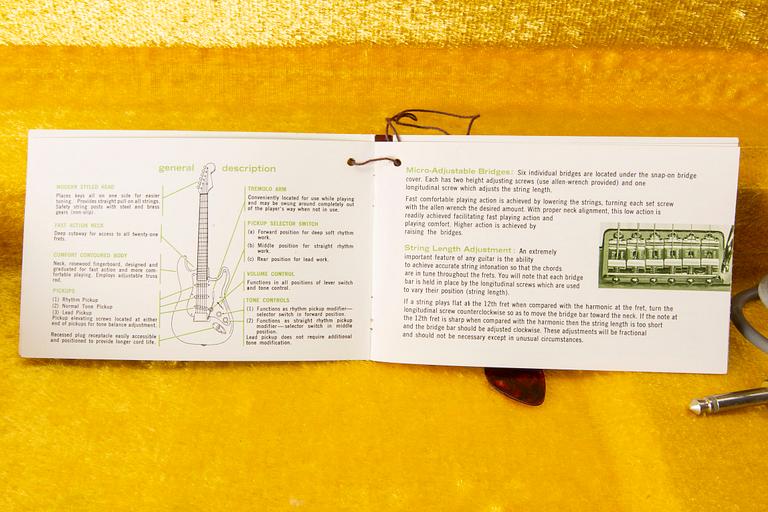 general description
MODERN STYLED HEAD
Places keys all on one side for easier
tuning. Provides straight pull on all strings.
Safety string posts with steel and brass
gears (non-slip).
FAST ACTION NECK
Deep cutaway for access to all twenty-one
frets.
COMFORT CONTOURED BODY
Neck, rosewood fingerboard, designed and
graduated for fast action and more com-
fortable playing. Employs adjustable truss
rod.
PICKUPS
(1) Rhythm Pickup
(2) Normal Tone Pickup
(3) Lead Pickup
Pickup elevating screws located at either
end of pickups for tone balance adjustment.
Recessed plug receptacle easily accessible
and positioned to provide longer cord life.
TREMOLO ARM
Conveniently located for use while playing
and may be swung around completely out
of the player's way when not in use.
PICKUP SELECTOR SWITCH
(a) Forward position for deep soft rhythm
work.
(b) Middle position for straight rhythm
work.
(c) Rear position for lead work.
VOLUME CONTROL
Functions in all positions of lever switch
and tone control.
TONE CONTROLS
(1) Functions as rhythm pickup modifier—
selector switch in forward position.
(2) Functions as straight rhythm pickup
modifier—selector switch in middle
position.
Lead pickup does not require additional
tone modification.
Micro-Adjustable Bridges: Six individual bridges are located under the snap-on bridge
cover. Each has two height adjusting screws (use allen-wrench provided) and one
longitudinal screw which adjusts the string length.
Fast comfortable playing action is achieved by lowering the strings, turning each set screw
with the allen wrench the desired amount. With proper neck alignment, this low action is
readily achieved facilitating fast playing action and
playing comfort. Higher action is achieved by
raising the bridges.
String Length Adjustment: An extremely
important feature of any guitar is the ability
to achieve accurate string intonation so that the chords
are in tune throughout the frets. You will note that each bridge
bar is held in place by the longitudinal screws which are used
to vary their position (string length).
If a string plays flat at the 12th fret when compared with the harmonic at the fret, turn the
longitudinal screw counterclockwise so as to move the bridge bar toward the neck. If the note at
the 12th fret is sharp when compared with the harmonic then the string length is too short
and the bridge bar should be adjusted clockwise. These adjustments will be fractional
and should not be necessary except in unusual circumstances.